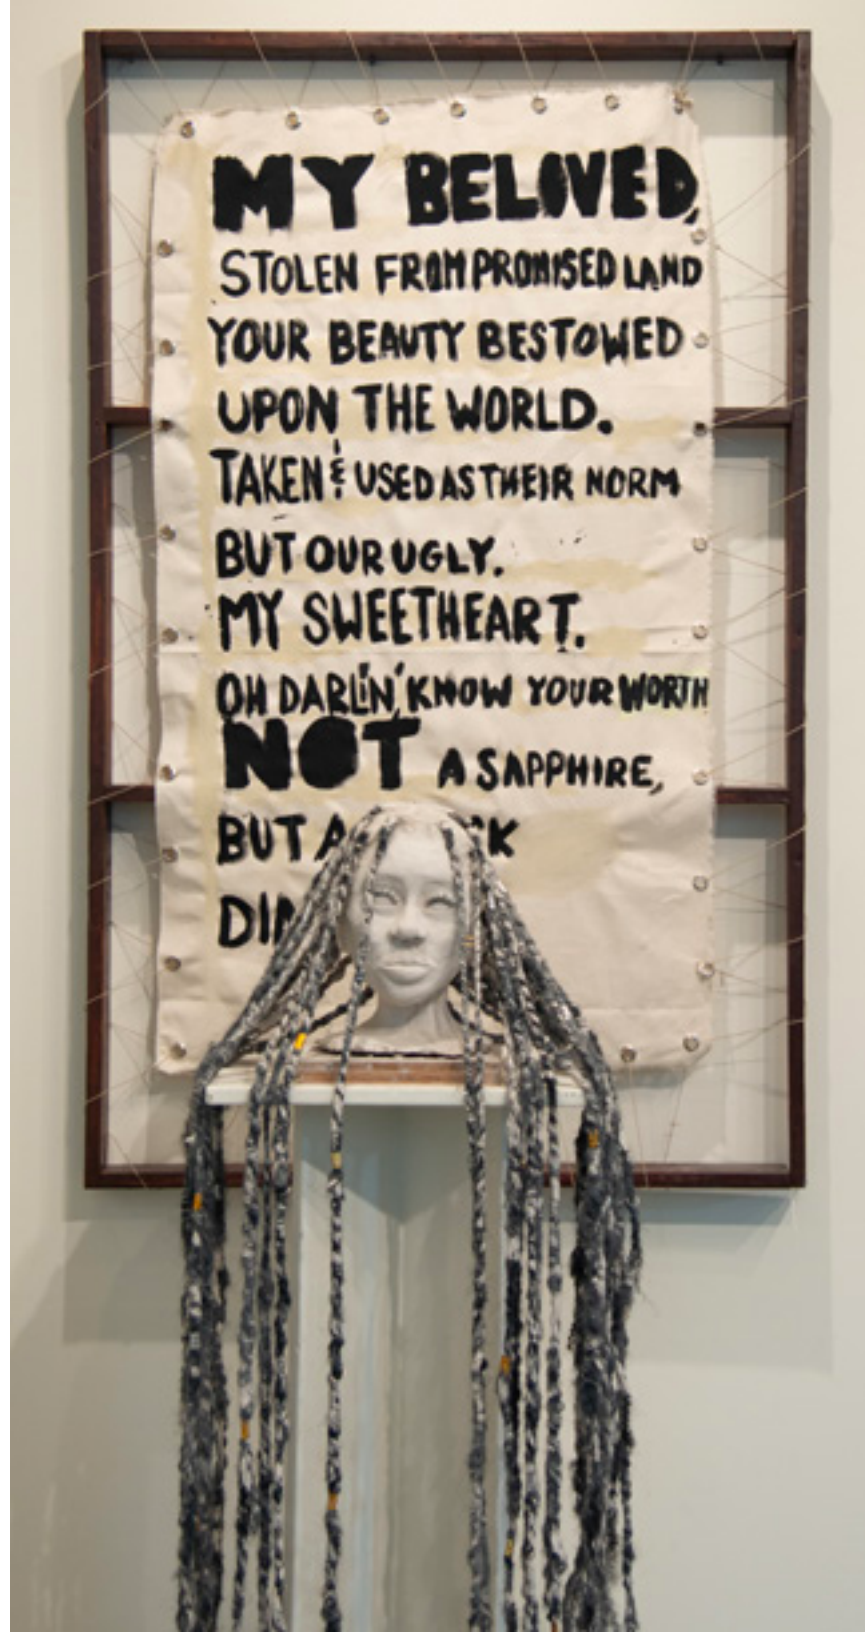 MY BELOVED,
STOLEN FROM PROMISED LAND
YOUR BEAUTY BESTOWED
UPON THE WORLD.
TAKEN & USED AS THEIR NORM
BUT OUR UGLY.
MY SWEETHEART.
OH DARLIN' KNOW YOUR WORTH
NOT A SAPPHIRE,
BUT A